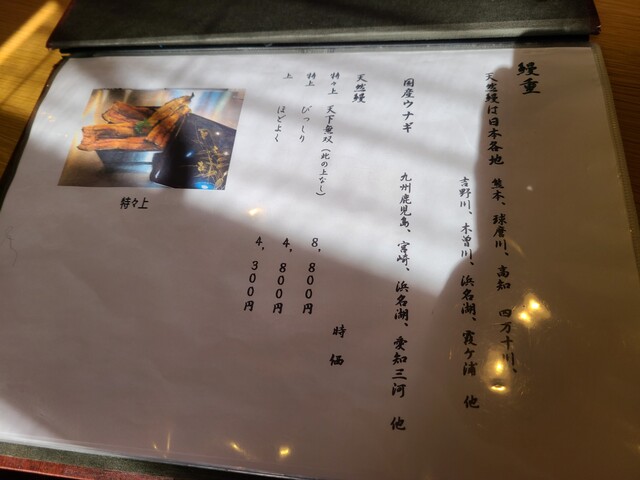 鰻重
天然鰻は日本各地 熊本、球磨川、高知 四万十川、
吉野川、木曽川、浜名湖、霞ケ浦 他
国産ウナギ 九州鹿児島、宮崎、浜名湖、愛知三河 他
天然鰻 時価
特々上 天下無双(此の上なし) 8,800円
特上 びっしり 4,800円
上 ほどよく 4,300円
特々上